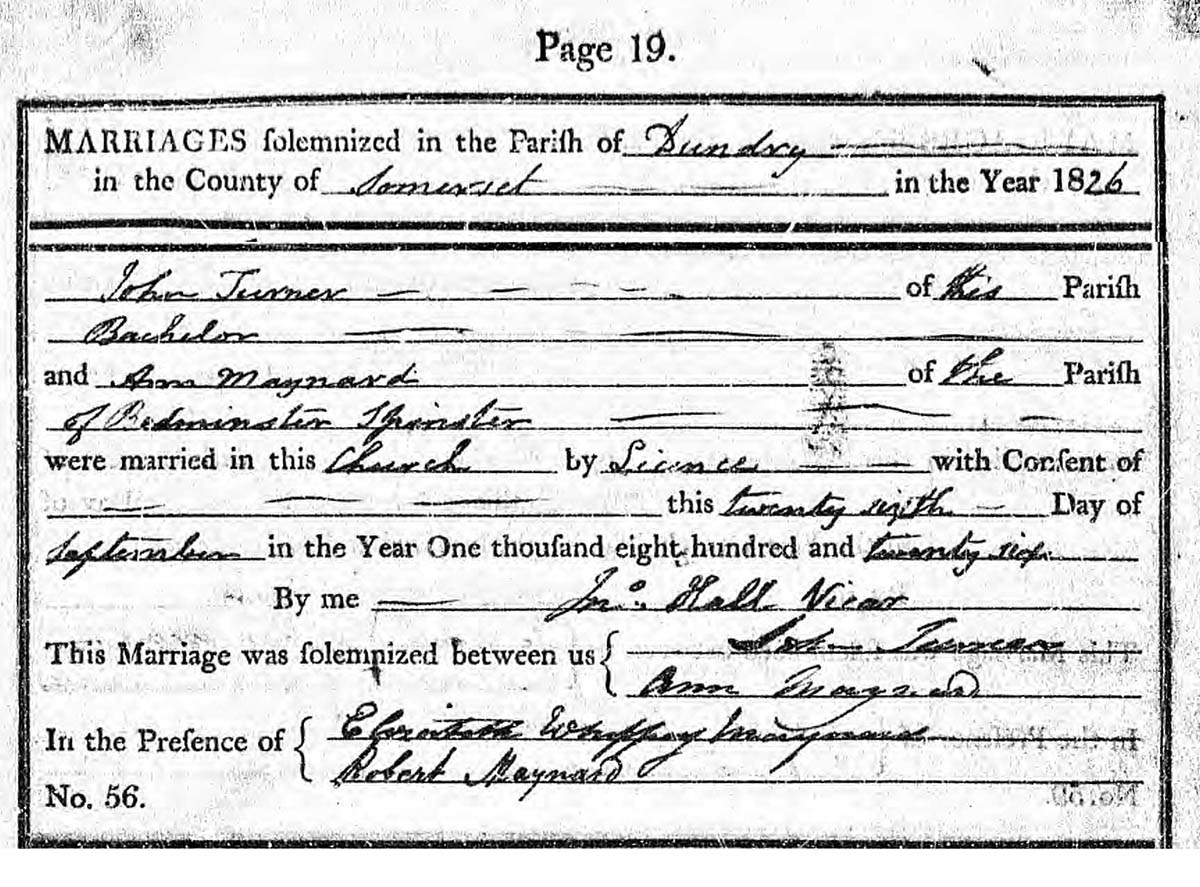 Page 19.
MARRIAGES ſolemnized in the Pariſh of Dundry
in the County of Somerset in the Year 1826
John Turner of this Pariſh
Bachelor
and Ann Maynard of the Pariſh
of Bedminster Spinster
were married in this Church by Licence with Conſent of
this twenty sixth Day of
September in the Year One thouſand eight hundred and twenty six
By me Jno. Hall Vicar
This Marriage was ſolemnized between us { John Turner
Ann Maynard
In the Preſence of { Elizabeth Maynard
Robert Maynard
No. 56.